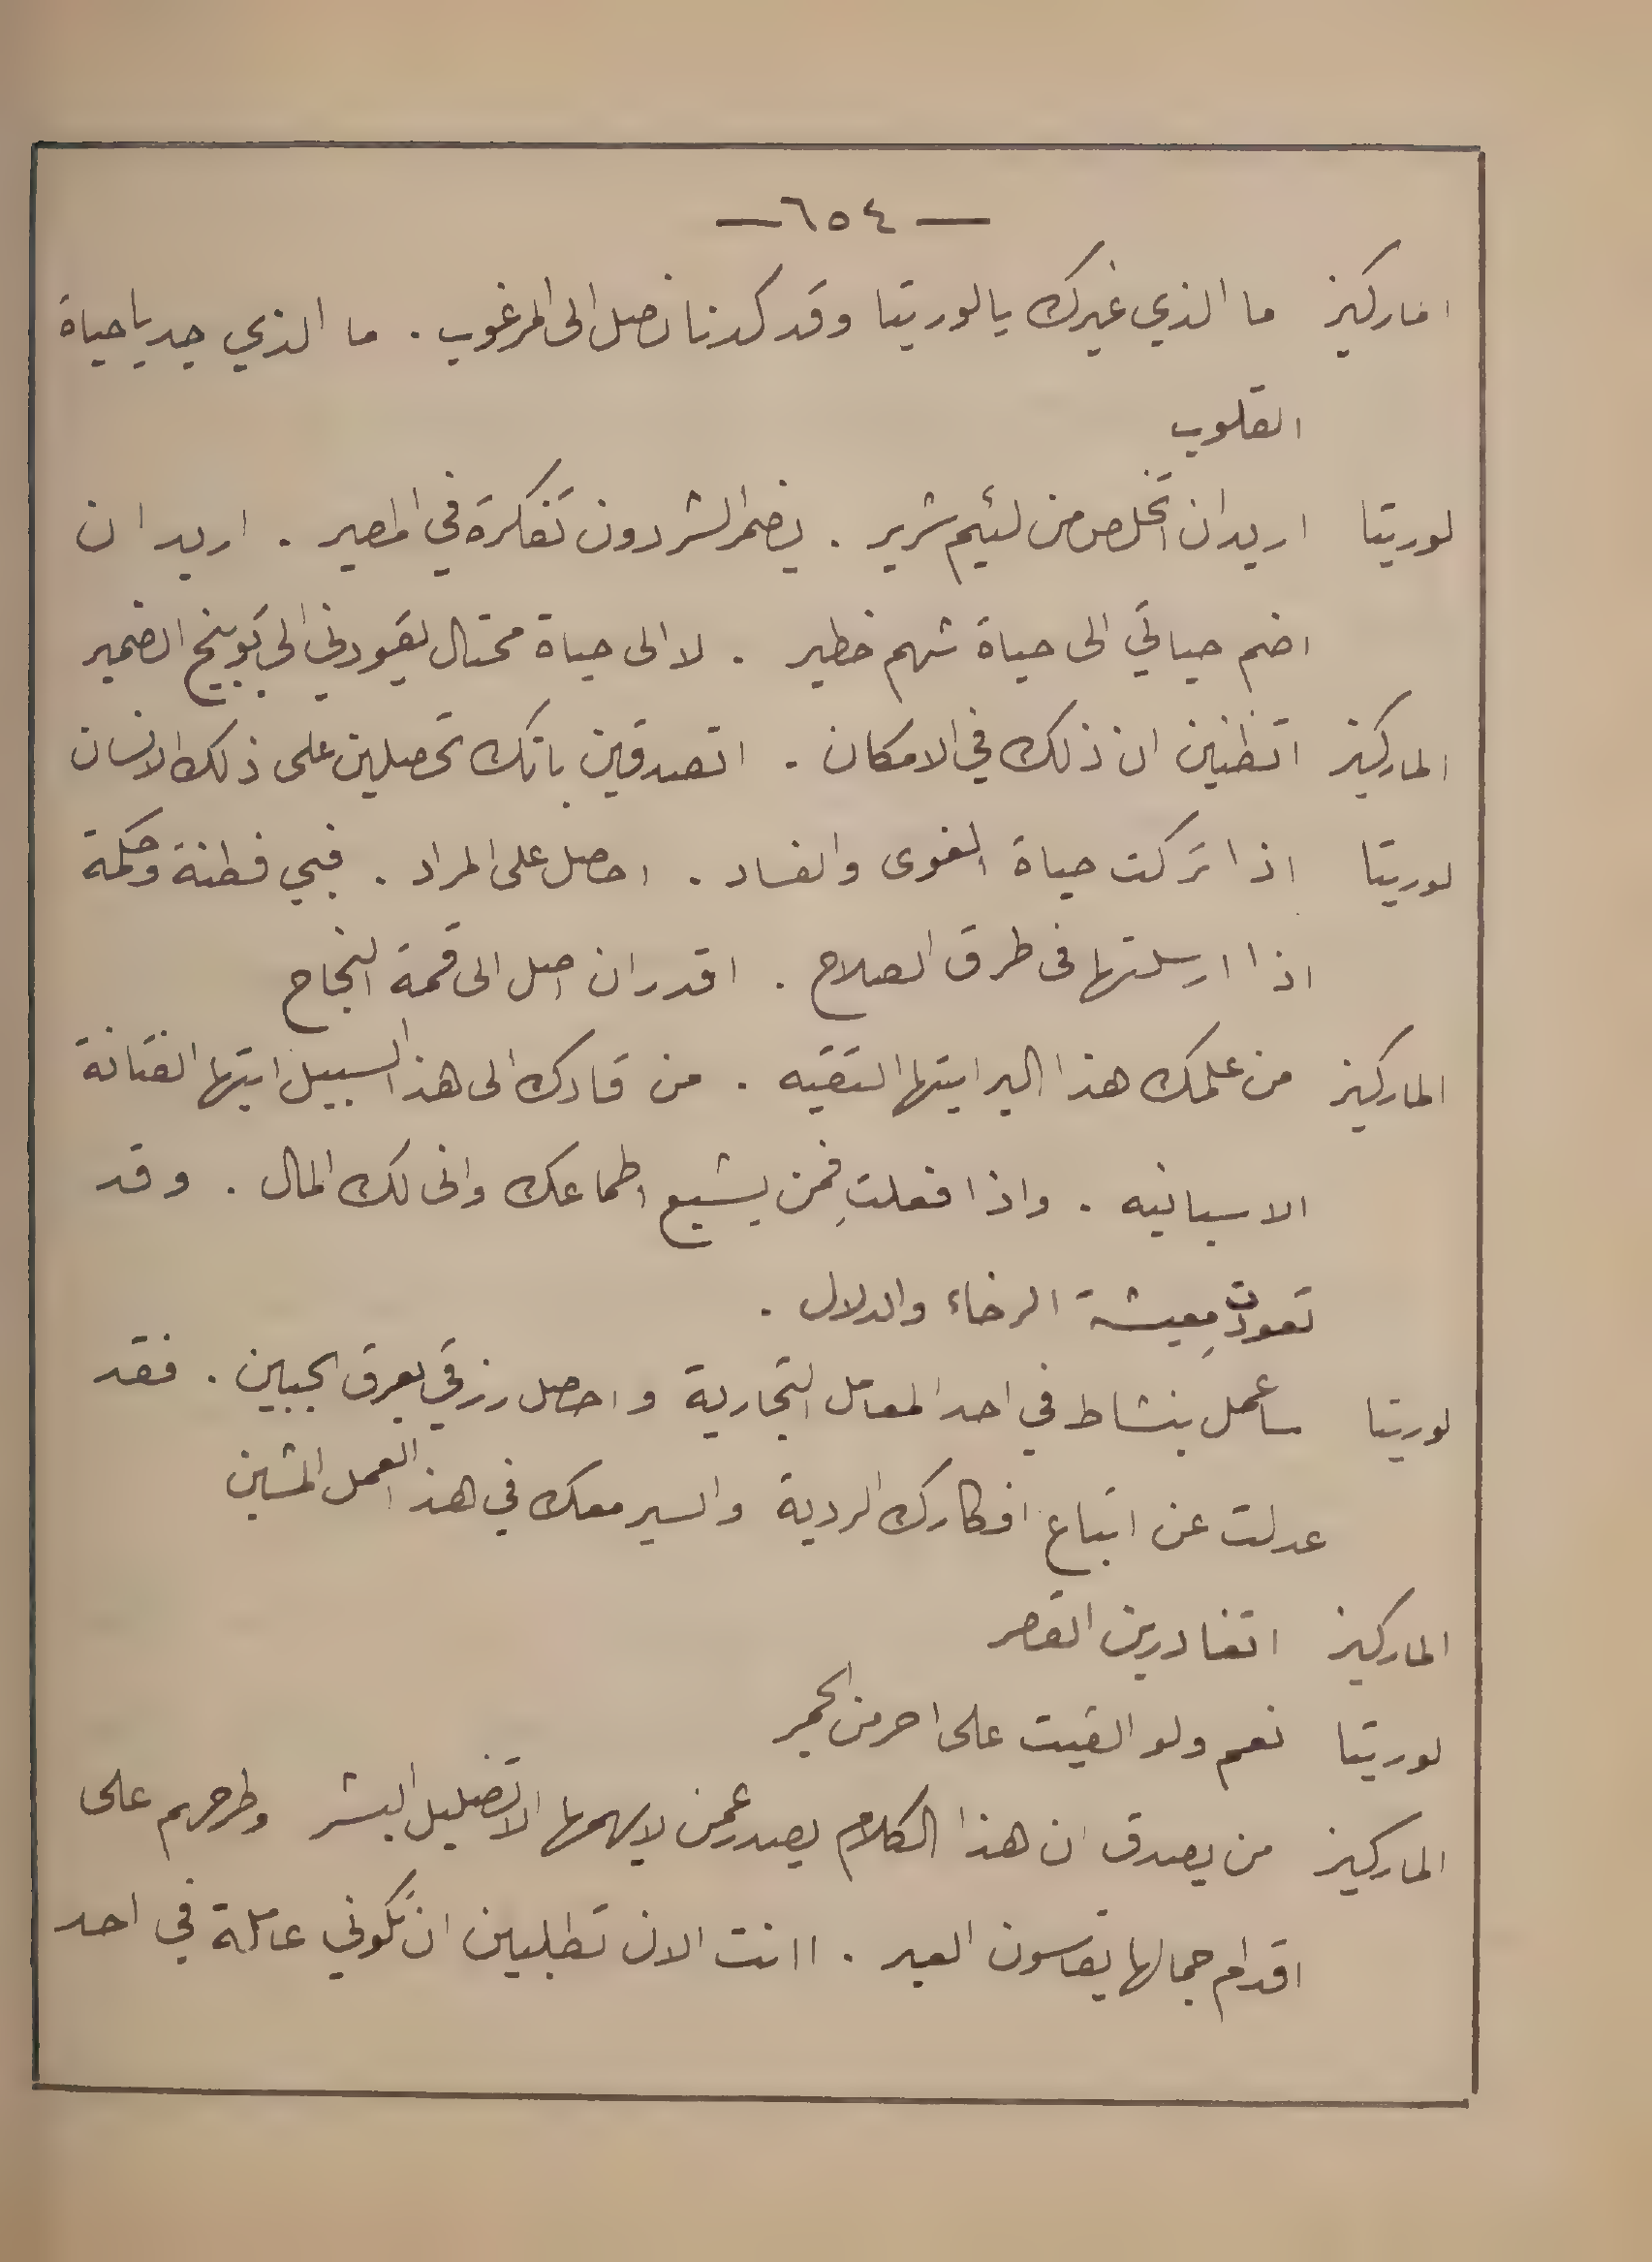 — ٦٥٤ —
الماركيز ما الذي غيرك يا لوريتا وقد كدنا نصل الى المرغوب . ما الذي جد يا حياة
القلوب
لوريتا اريد ان اتخلص من لئيم شرير . يضمر الشر دون تفكرة في المصير . اريد ان
اضم حياتي الى حياة شهم خطير . لا الى حياة محتال يقودني الى توبيخ الضمير
الماركيز اتظنين ان ذلك في الامكان . اتصدقين بانك تحصلين على ذلك الانسان
لوريتا اذا تركت حياة الغوى والفساد . احصل على المراد . فبي فطنة وحكمة
اذا ارسلتها في طرق الصلاح . اقدر ان اصل الى قمة النجاح
الماركيز من علمك هذا البر ايتها التقيه . من قادك الى هذا السبيل ايتها الفتانة
الاسبانيه . واذا فعلتِ فمن يشبع اطماعك وانى لك المال . وقد
تعودتِ معيشة الرخاء والدلال .
لوريتا ساعمل بنشاط في احد المعامل التجارية واحصل رزقي بعرق الجبين . فقد
عدلت عن اتباع افكارك الردية والسير معك في هذا العمل المشين
الماركيز اتغادرين القصر
لوريتا نعم ولو القيت على احر من الجمر
الماركيز من يصدق ان هذا الكلام يصدر عمن لا يهمها الا تضليل البشر وطرحهم على
اقدام جمالها يقاسون العبر . اانت الان تطلبين ان تكوني عاملة في احد